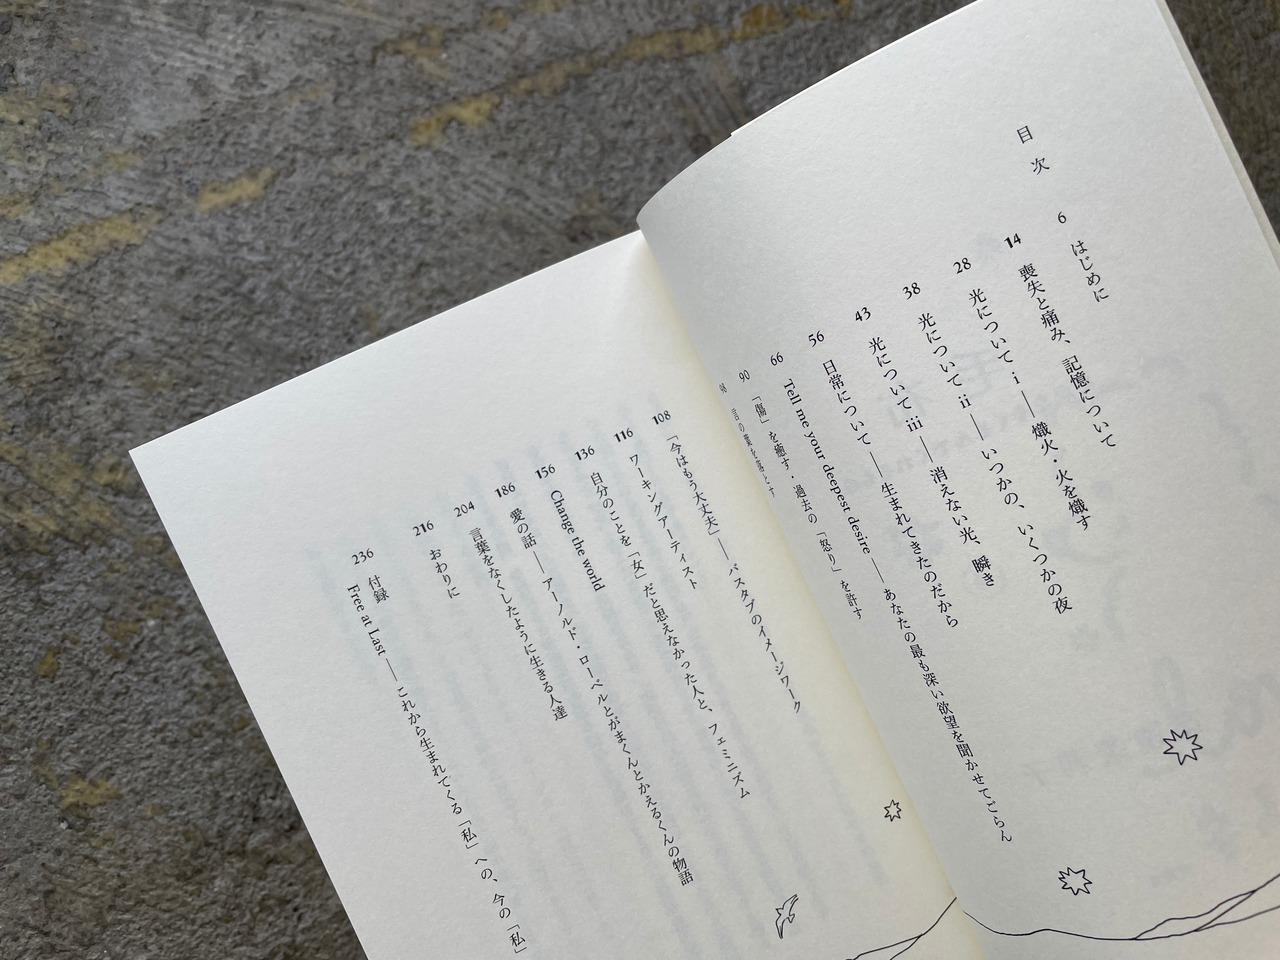 目次
6 はじめに
14 喪失と痛み、記憶について
28 光について ⅰ ── 熾火・火を熾す
38 光について ⅱ ── いつかの、いくつかの夜
43 光について ⅲ ── 消えない光、瞬き
56 日常について ── 生まれてきたのだから
66 Tell me your deepest desire ── あなたの最も深い欲望を聞かせてごらん
90 「傷」を癒す・過去の「怒り」を許す
98 言の葉を落とす
108 「今はもう大丈夫」── バスタブのイメージワーク
116 ワーキングアーティスト
136 自分のことを「女」だと思えなかった人と、フェミニズム
156 Change the world
186 愛の話 ── アーノルド・ローベルとがまくんとかえるくんの物語
204 言葉をなくしたように生きる人達
216 おわりに
236 付録
Free at Last ── これから生まれてくる「私」への、今の「私」